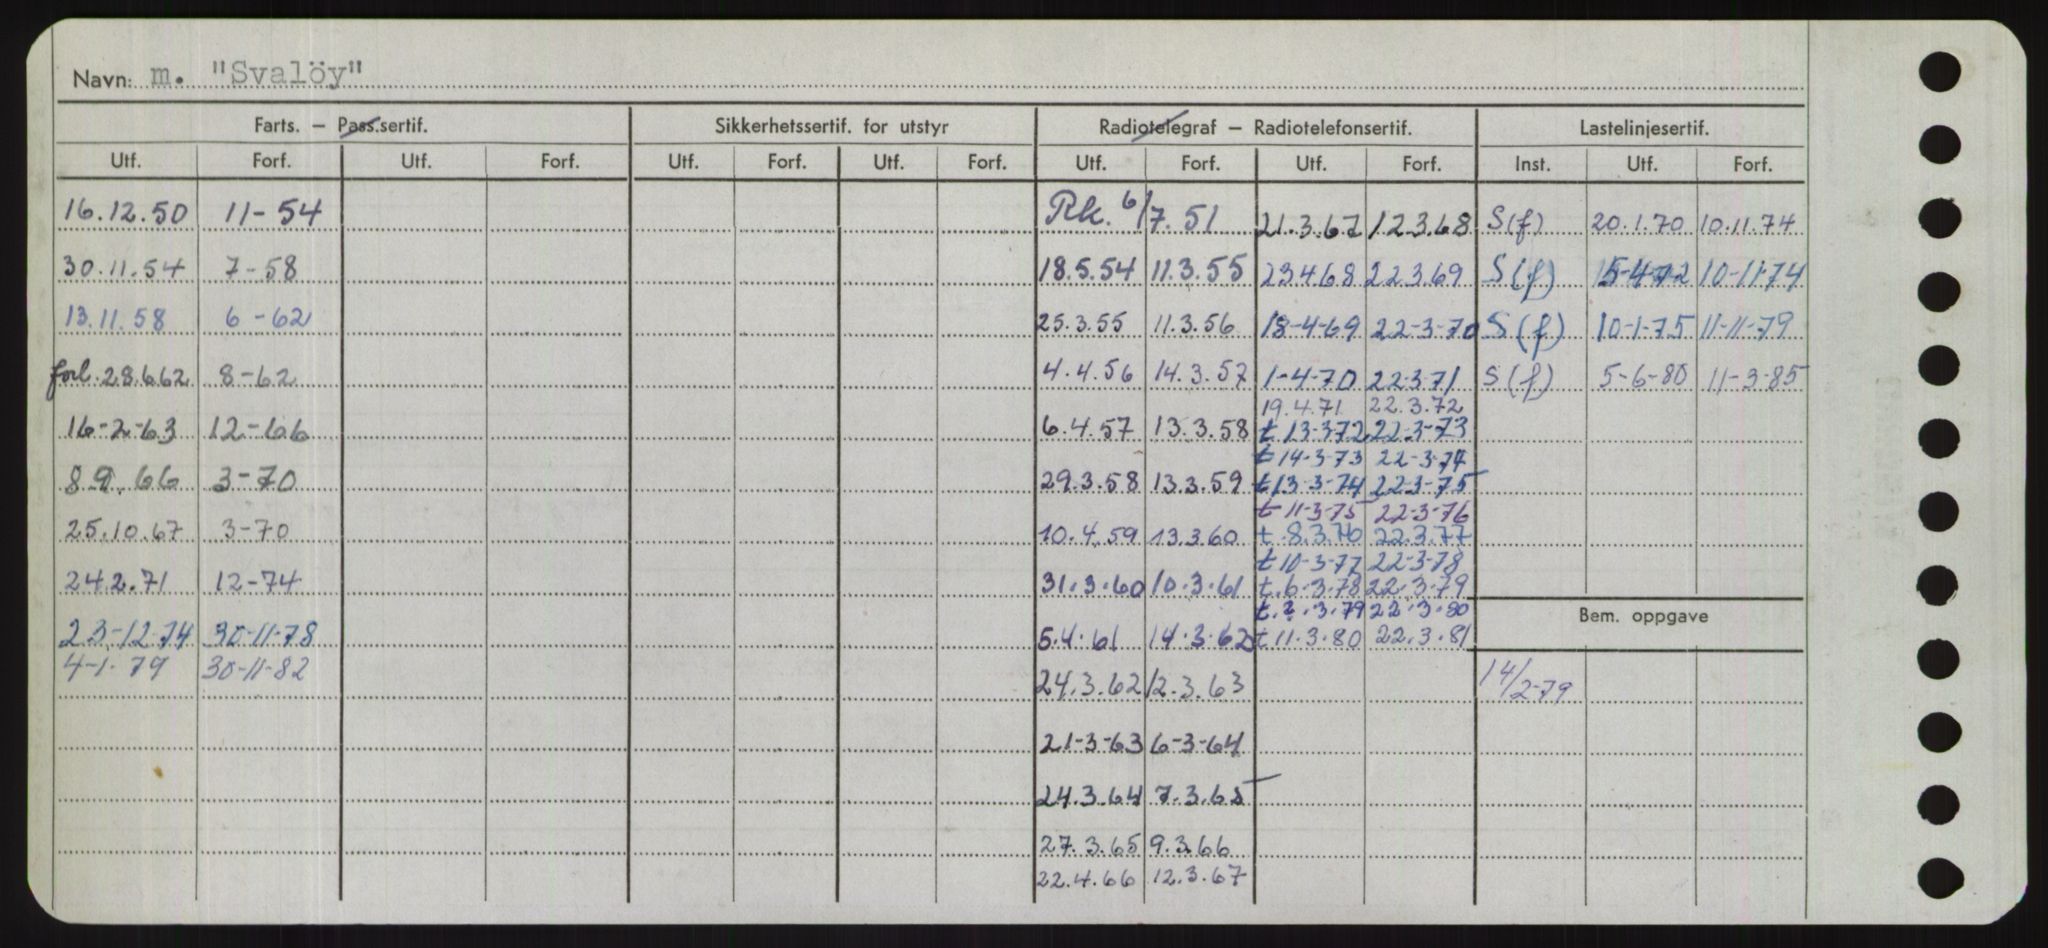 Navn: m. "Svalöy"
Farts. – Pass.sertif. Sikkerhetssertif. for utstyr Radiotelegraf – Radiotelefonsertif. Lastelinjesertif.
Utf. Forf. Utf. Forf. Utf. Forf. Utf. Forf. Utf. Forf. Utf. Forf. Inst. Utf. Forf.
16.12.50 11-54 Rk. 6/7.51 21.3.67 12.3.68 S(f) 20.1.70 10.11.74
30.11.54 7-58 18.5.54 11.3.55 23.4.68 22.3.69 S(f) 5-4-72 10-11-74
13.11.58 6-62 25.3.55 11.3.56 18-4-69 22-3-70 S(f) 10-1-75 11-11-79
forl. 28.6.62 8-62 4.4.56 14.3.57 1-4-70 22-3-71 S(f) 5-6-80 11-3-85
19.4.71 22.3.72
16-2-63 12-66 6.4.57 13.3.58 t 13-3-72 22-3-73
t 14-3-73 22-3-74
8.9.66 3-70 29.3.58 13.3.59 t 13-3-74 22-3-75
t 11-3-75 22-3-76
25.10.67 3-70 10.4.59 13.3.60 t 8.3.76 22.3.77
t 10-3-77 22-3-78
24.2.71 12-74 31.3.60 10.3.61 t. 6.3.78 22.3.79
t. 2.3.79 22.3.80 Bem. oppgave
23-12-74 30-11-78 5.4.61 14.3.62 t 11.3.80 22.3.81
4-1-79 30-11-82 24.3.62 12.3.63 14/2-79
21-3-63 6-3-64
24.3.64 7.3.65
27.3.65 9.3.66
22.4.66 12.3.67